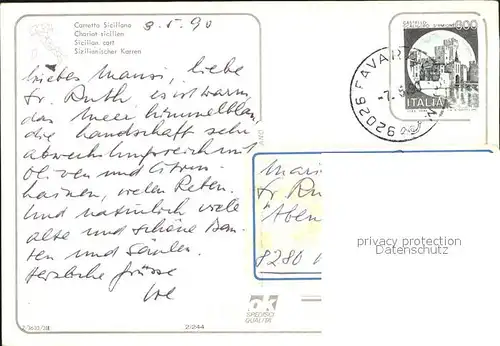 Carretto Siciliano
Chariot sicilien
Sicilian cart
Sizilianischer Karren
8.5.90
liebes Mausi, liebe
Fr. Ruth, es ist warm,
das Meer himmelblau,
die Landschaft sehr
abwechslungsreich mit
Oliven und Citrus-
hainen, vielen
Und natürlich viele
alte und schöne Bau-
ten und Säulen.
Herzliche Grüsse
CASTELLO
800
ITALIA
92026 FAVARA
-7.5
Fr. Ru
8280
privacy protection
Datenschutz
ok
SPECIAL
QUALITÄT
2/244